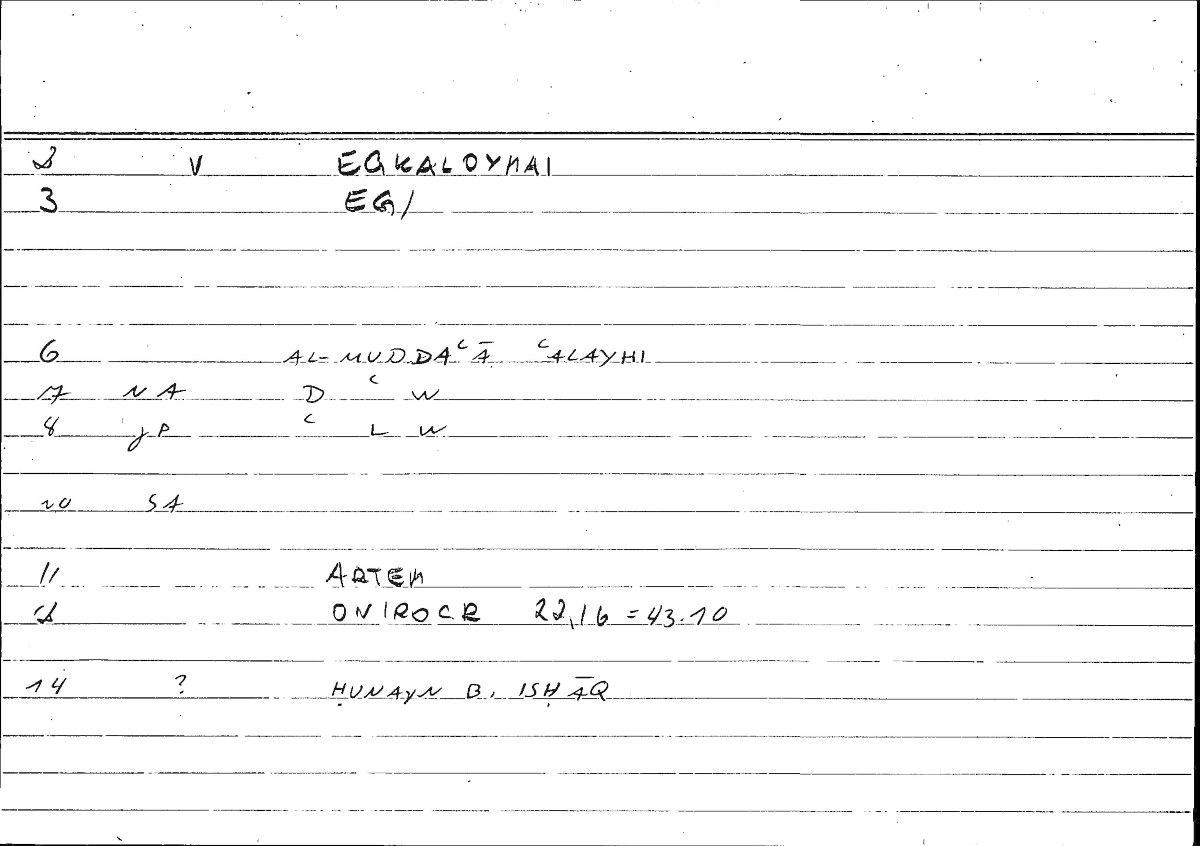 2 V EGKALOYMAI
3 EG/
6 AL-MUDDAʿĀ ʿALAYHI
7 NA D ʿ W
8 JP ʿ L W
10 SA
11 ARTEM
2 ONIROCR 22,16 = 43.10
14 ? ḤUNAYN B. ISḤĀQ